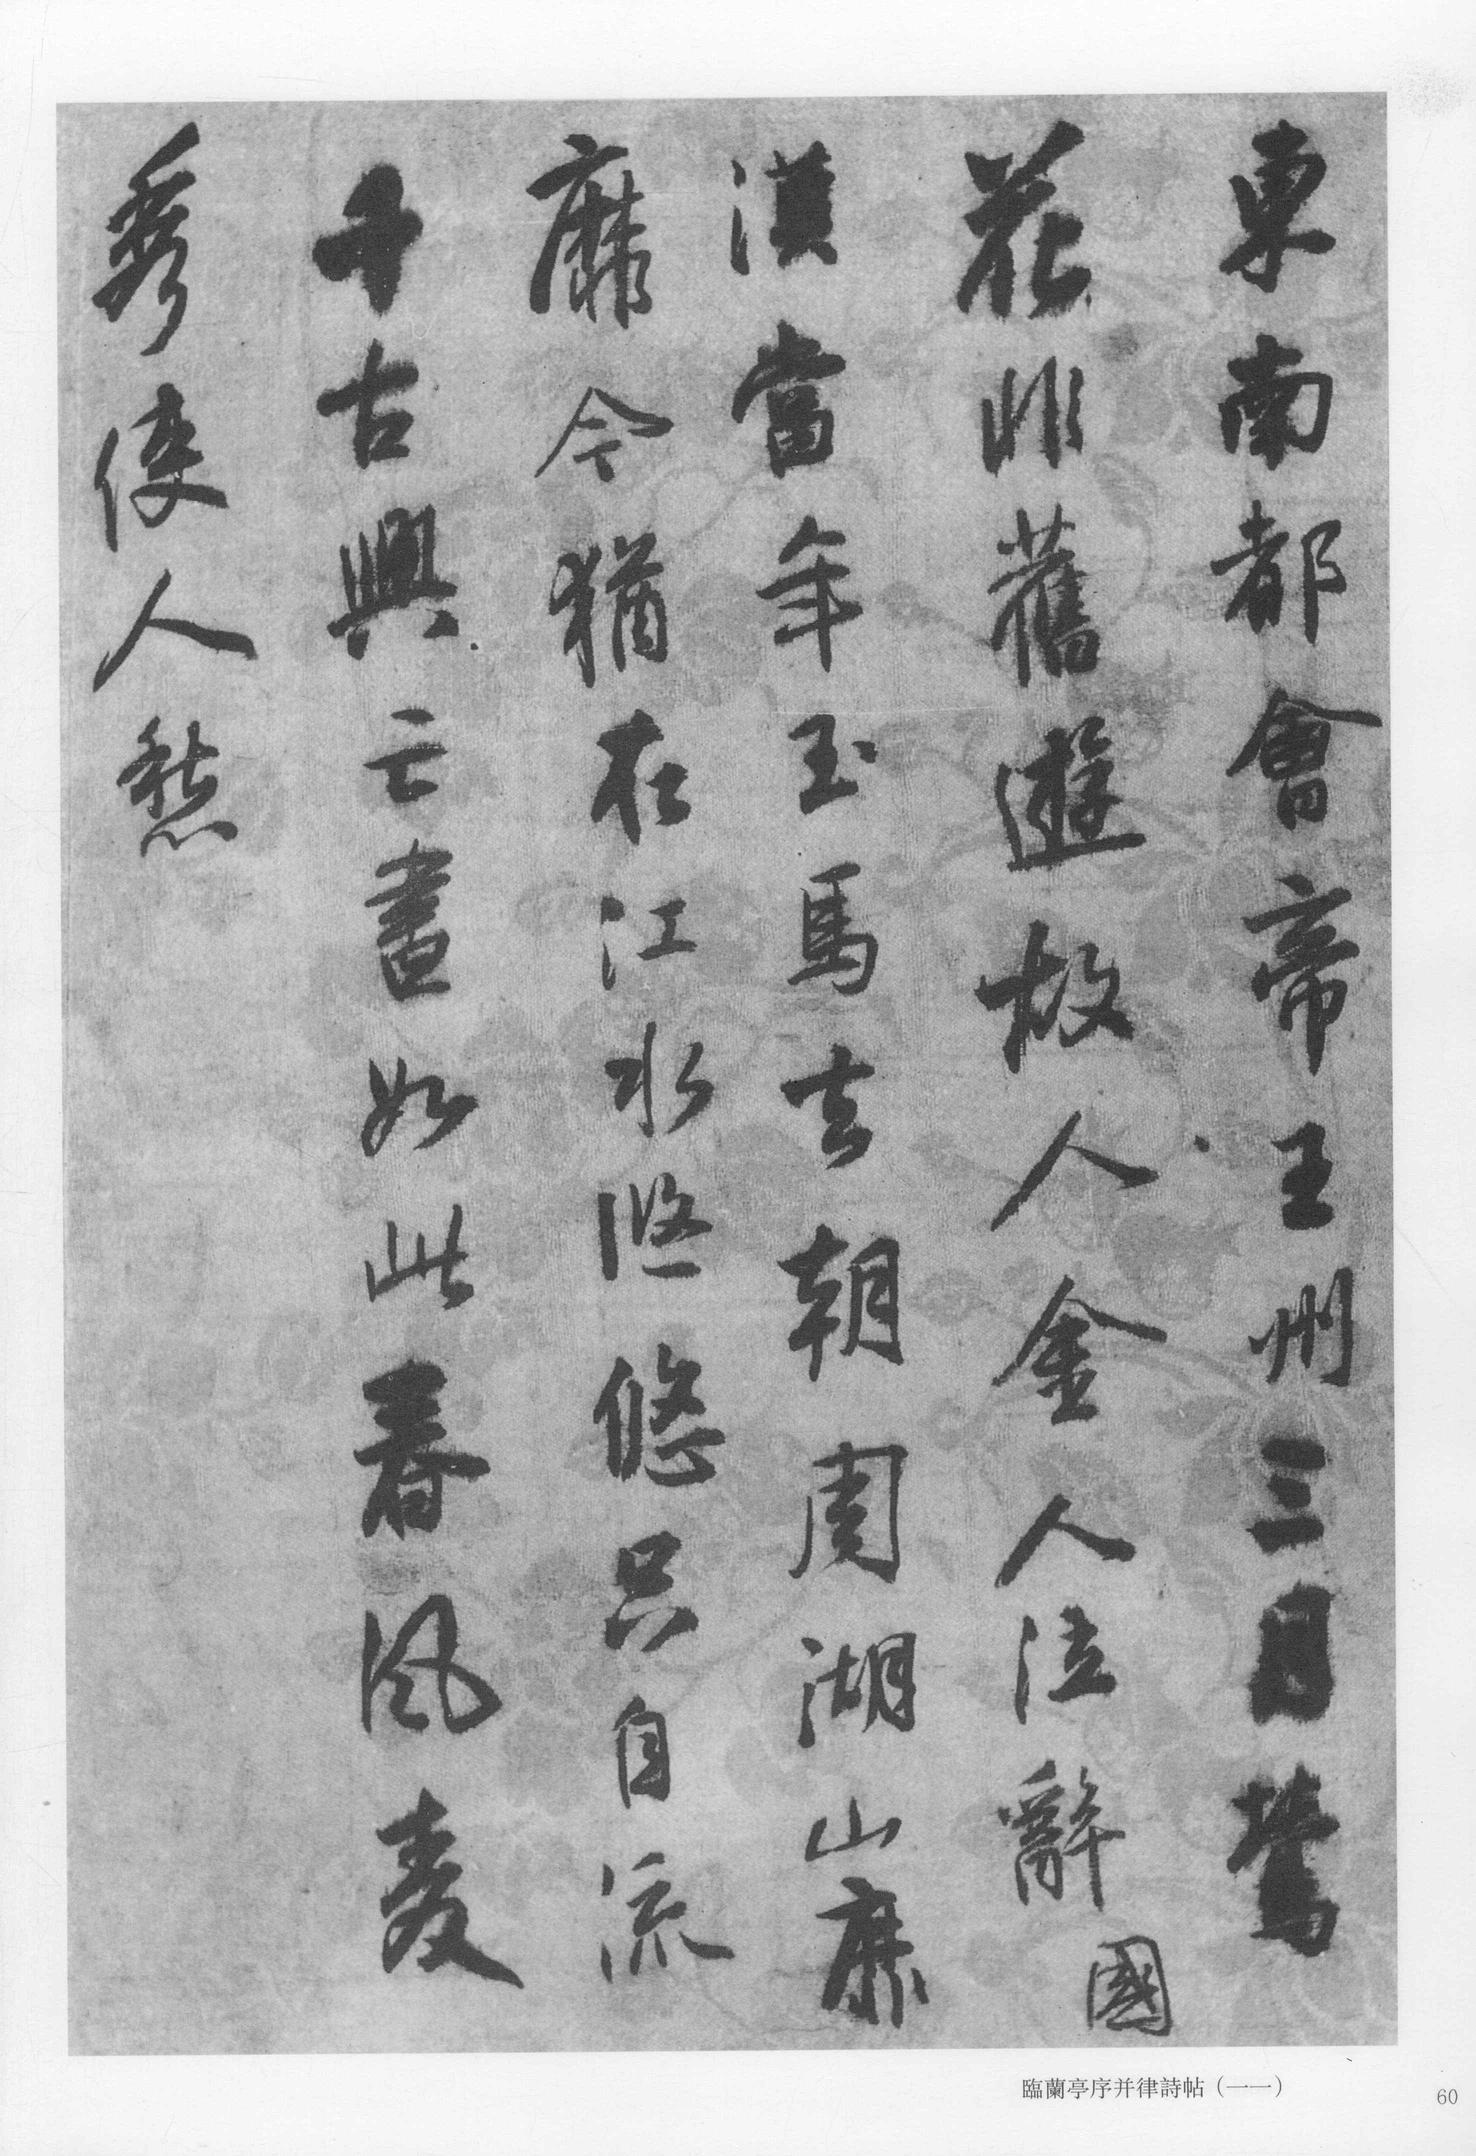 東南都會帝王州三月鶯
花非舊遊故人金人泣辭
國
漢當年玉馬去朝周湖山靡
靡今猶在江水悠悠只自流
千古興亡盡如此春風麦
秀使人愁
臨蘭亭序并律詩帖（一一）
60